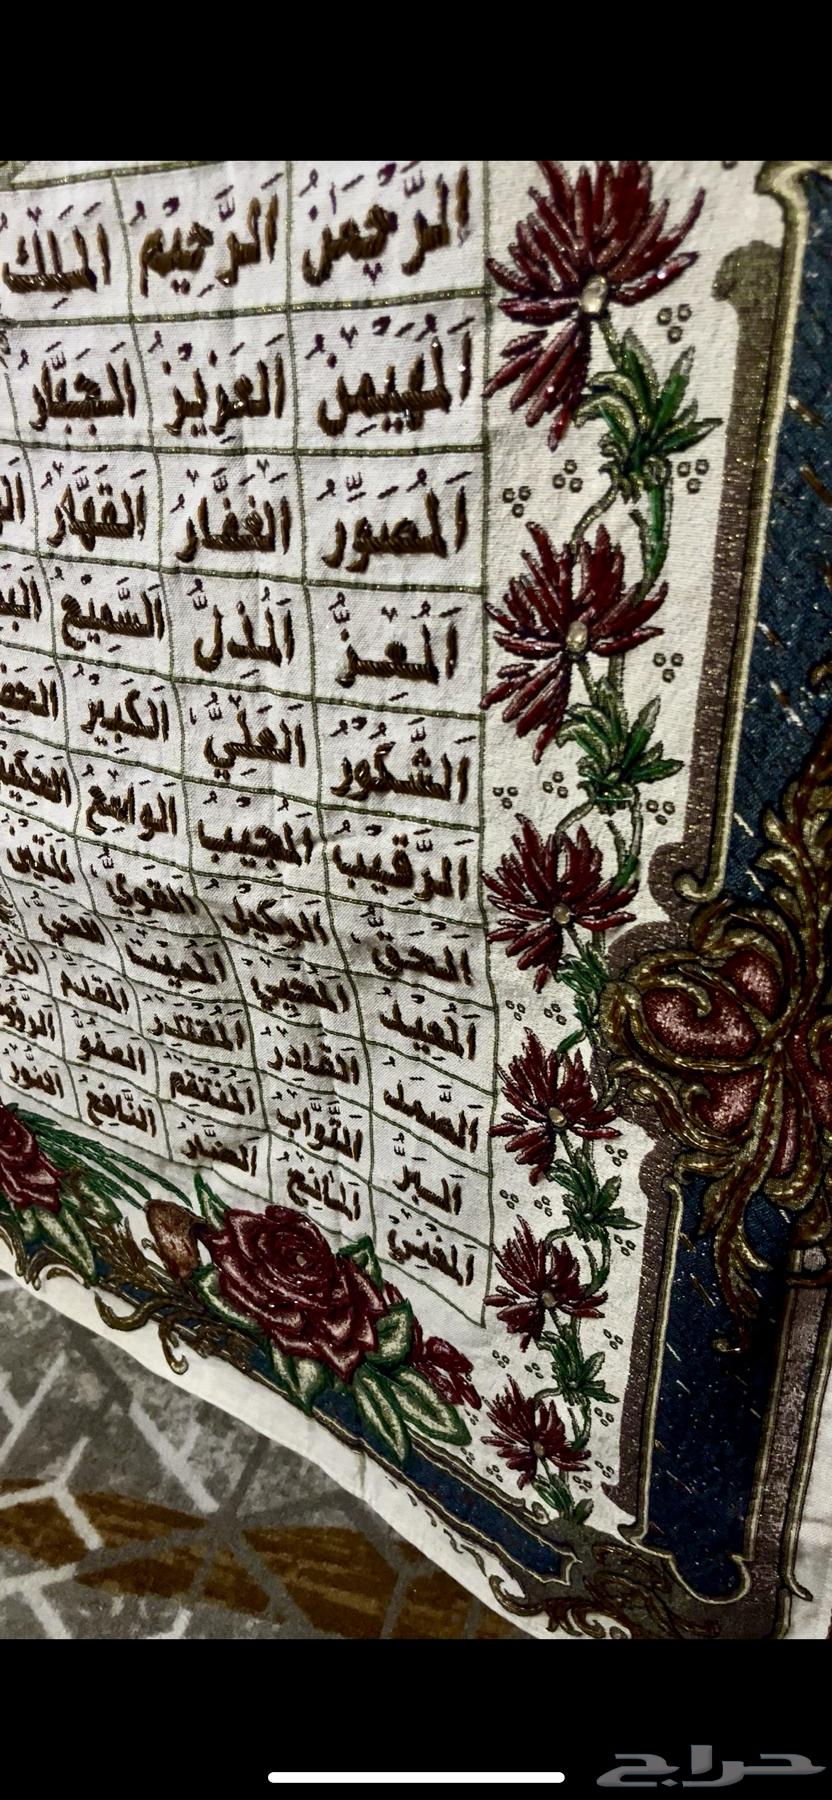 الرَّحْمَنُ الرَّحِيْمُ المَلِكُ
المُهَيْمِنُ العَزِيْزُ الجَبَّارُ
المُصَوِّرُ الغَفَّارُ القَهَّارُ
المُعِزُّ المُذِلُّ السَّمِيْعُ
الشَّكُوْرُ العَلِيُّ الكَبِيْرُ
الرَّقِيْبُ المُجِيْبُ الوَاسِعُ
الحَقُّ الوَكِيْلُ القَوِيُّ المَتِيْنُ
المُعِيْدُ المُحْيِي المُمِيْتُ الحَيُّ
الصَّمَدُ القَادِرُ المُقْتَدِرُ المُقَدِّمُ
البَرُّ التَّوَّابُ المُنْتَقِمُ العَفُوُّ
المُغْنِيْ المَانِعُ الضَّارُّ النَّافِعُ النُّوْرُ
حراج